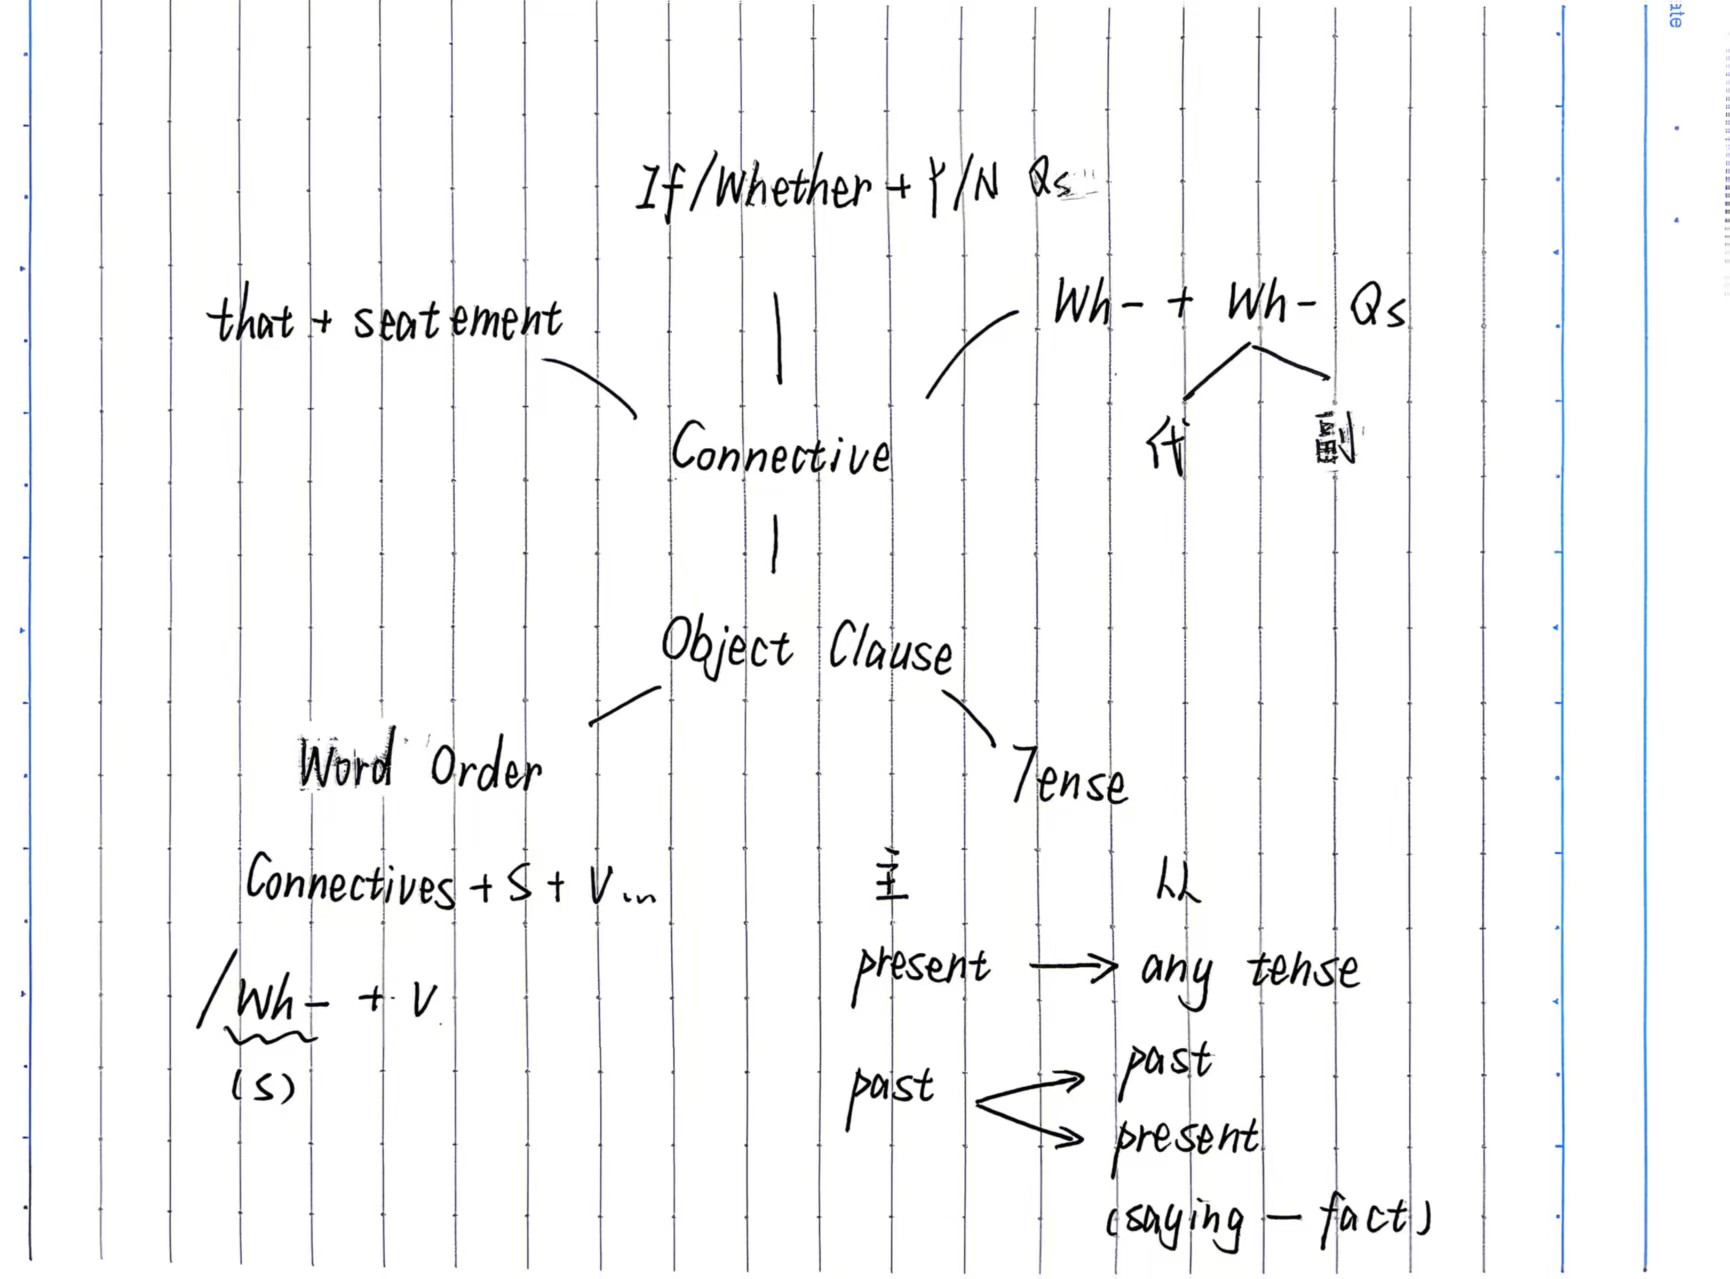 ate
If/Whether + Y/N Qs
that + seatement
Wh- + Wh- Qs
代 副
Connective
Object Clause
Word Order
Tense
Connectives + S + V...
主 从
/Wh- + V
(S)
present → any tense
past
past
present
(saying — fact)